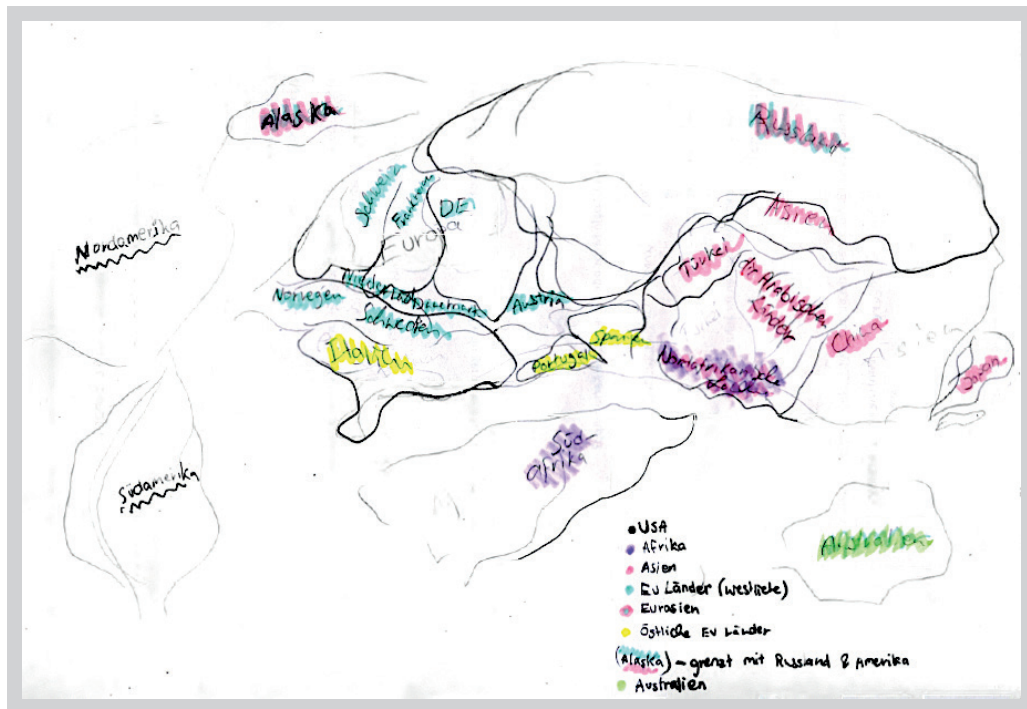 Alaska
Russland
Nordamerika
Schweiz
Frankreich
DE
Europa
Asien
Türkei
Arabischen
Länder
China
Asien
Japan
Norwegen
Schweden
Austria
Italien
Portugal
Spanien
Nordafrikanische
Süd-
afrika
Südamerika
Australien
USA
Afrika
Asien
EU Länder (westliche)
Eurasien
Östliche EU Länder
(Alaska) - grenzt mit Russland & Amerika
Australien